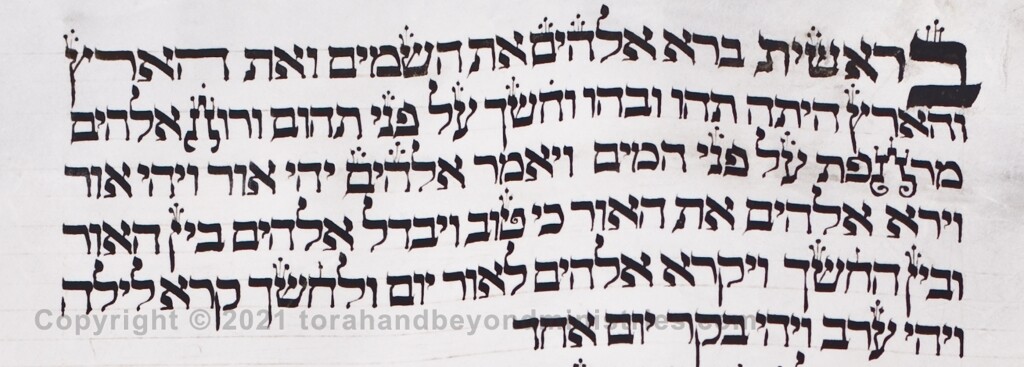 בראשית ברא אלהים את השמים ואת הארץ
והארץ היתה תהו ובהו וחשך על פני תהום ורוח אלהים
מרחפת על פני המים ויאמר אלהים יהי אור ויהי אור
וירא אלהים את האור כי טוב ויבדל אלהים בין האור
ובין החשך ויקרא אלהים לאור יום ולחשך קרא לילה
Copyright © 2021 torahandbeyondministries.com
ויהי ערב ויהי בקר יום אחד